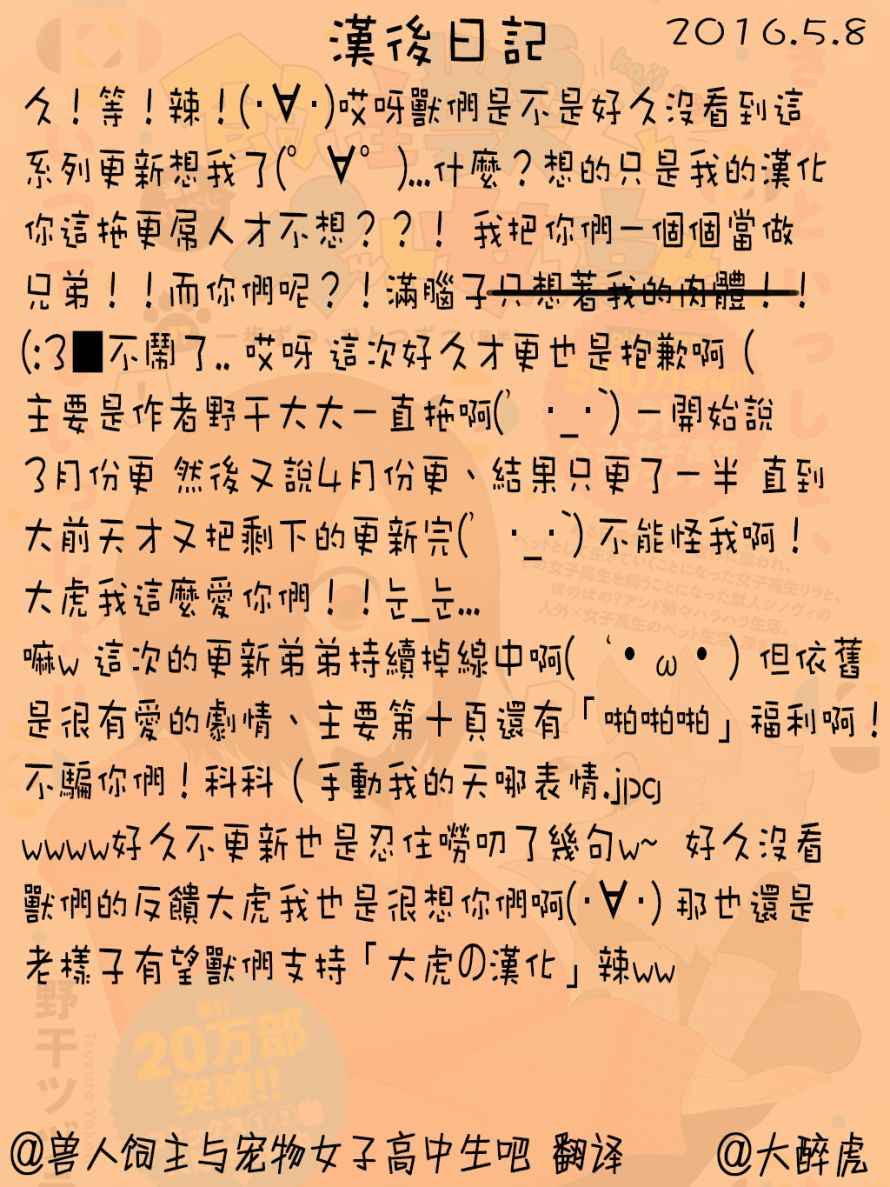 漢後日記 2016.5.8
久！等！辣！(･∀･)哎呀獸們是不是好久沒看到這
系列更新想我了(ﾟ∀ﾟ)...什麼？想的只是我的漢化
你這拖更屌人才不想？？！ 我把你們一個個當做
兄弟！！而你們呢？！滿腦子只想著我的肉體！！
(:3█不鬧了.. 哎呀 這次好久才更也是抱歉啊（
主要是作者野干大大一直拖啊(’･_･‵)一開始說
3月份更 然後又說4月份更、結果只更了一半 直到
大前天才又把剩下的更新完(’･_･‵)不能怪我啊！
大虎我這麼愛你們！！눈_눈...
嘛w 這次的更新弟弟持續掉線中啊(‘•ω•)但依舊
是很有愛的劇情、主要第十頁還有「啪啪啪」福利啊！
不騙你們！科科（手動我的天哪表情.jpg
wwww好久不更新也是忍住嘮叨了幾句w~ 好久沒看
獸們的反饋大虎我也是很想你們啊(･∀･)那也還是
老樣子有望獸們支持「大虎の漢化」辣ww
野干ツ
20万部
突破!!
@兽人饲主与宠物女子高中生吧 翻译 @大醉虎